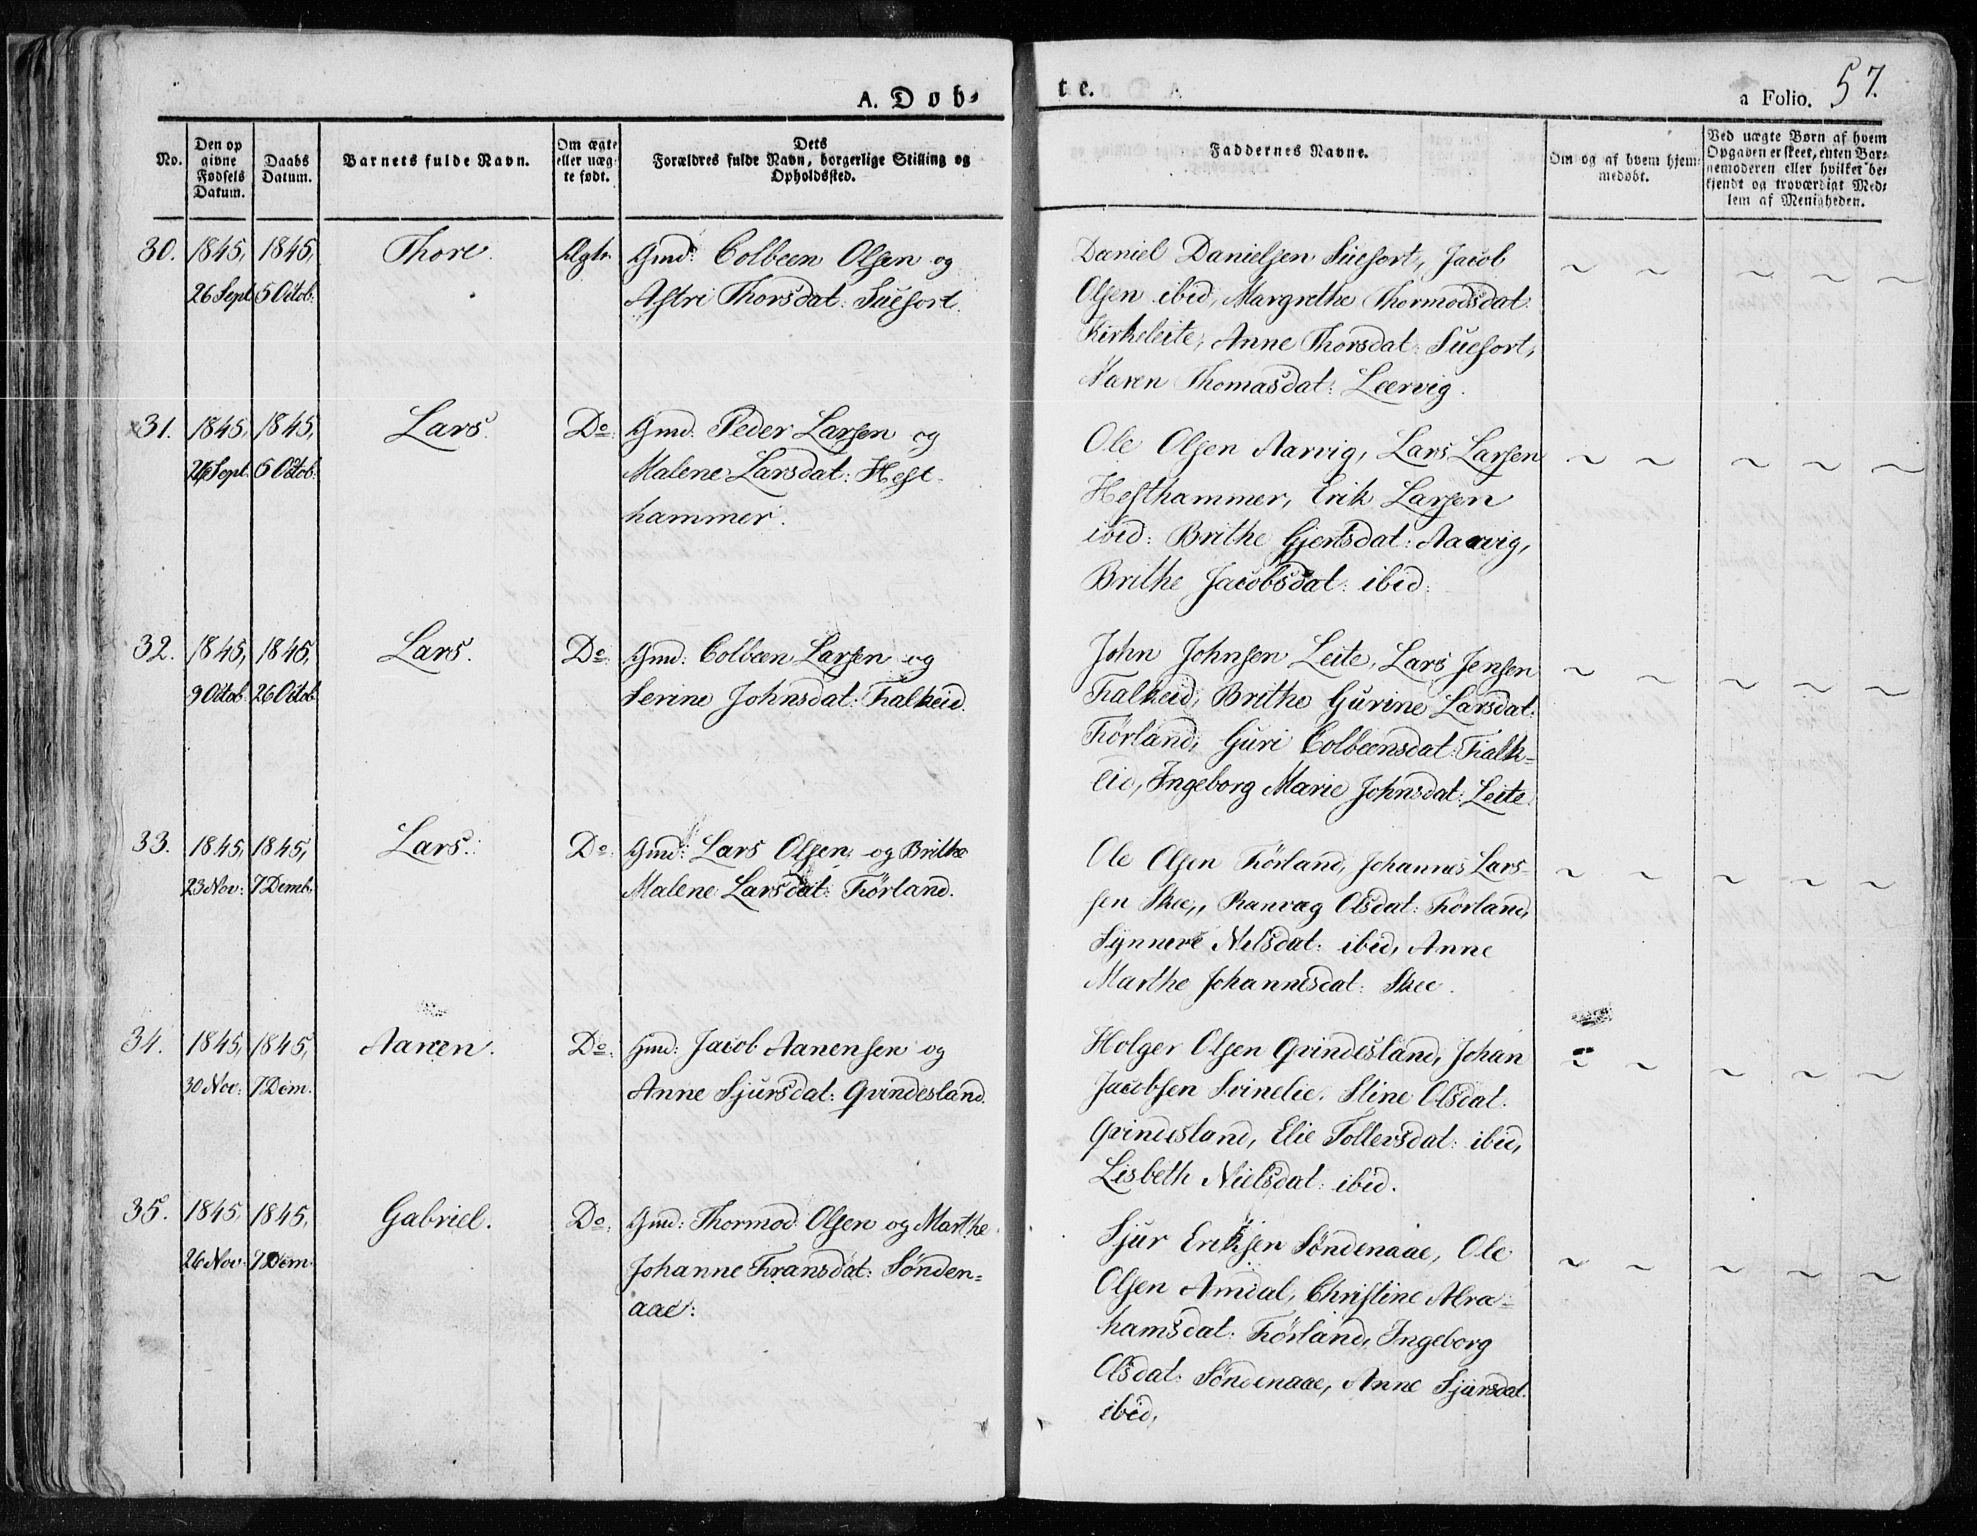 A. Døb-
te.
a Folio. 57.
No.
Den op
givne
Fødsels
Datum.
Daabs
Datum.
Barnets fulde Navn.
Om ægte
eller uæg-
te født.
Dets
Forældres fulde Navn, borgerlige Stilling og
Opholdssted.
Faddernes Navne.
Om og af hvem hjem-
medøbt.
Ved uægte Børn af hvem
Opgaven er skeet, enten Bar-
nemoderen eller hvilket be-
kjendt og troværdigt Med-
lem af Menigheden.
30. 1845, 1845, Thore. Ægte. Gmd: Colbeen Olsen og
26 Sept. 5 Octob. Astri Thorsdat: Suefort.
Daniel Danielsen Suefort, Jacob
Olsen ibid, Margrethe Thormodsdat:
Kirkeleite, Anne Thorsdat: Suefort,
Maren Thomasdat: Leervig.
31. 1845, 1845, Lars. Do. Gmd: Peder Larsen og
26 Sept. 5 Octob. Malene Larsdat: Hest-
hammer.
Ole Olsen Aarvig, Lars Larsen
Hesthammer, Erik Larsen
ibid: Brithe Gjertsdat: Aarvig,
Brithe Jacobsdat: ibid.
32. 1845, 1845, Lars. Do. Gmd: Colbeen Larsen og
9 Octob. 26 Octob. Serine Johnsdat: Fialheid.
John Johnsen Leite, Lars Jensen
Fialheid, Brithe Gurine Larsdat:
Førland, Guri Colbeensdat: Fialh-
eid, Ingeborg Marie Johnsdat: Leite.
33. 1845, 1845, Lars. Do. Gmd: Lars Olsen og Brithe
23 Nov: 7 Demb. Malene Larsdat: Førland.
Ole Olsen Førland, Johannes Lars-
sen Skee, Ranvæg Olsdat: Førland,
Synneve Nilsdat: ibid, Anne
Marthe Johannesdat: Skee.
34. 1845, 1845, Aanen. Do. Gmd: Jacob Aanensen og
30 Nov: 7 Dem. Anne Sjursdat: Qvindesland.
Holger Olsen Qvindesland, Johan
Jacobsen Svinelie, Stine Olsdat.
Qvindesland, Elie Tollevsdat: ibid,
Lisbeth Nielsdat: ibid.
35. 1845, 1845, Gabriel. Do. Gmd: Thormod Olsen og Marthe
26 Nov: 7 Dem. Johanne Fransdat: Sønden-
aae:
Sjur Eriksen Søndenaae, Ole
Olsen Amdal, Christine Abra-
hamsdat: Førland, Ingeborg
Olsdat: Søndenaae, Anne Sjursdat.
ibid,